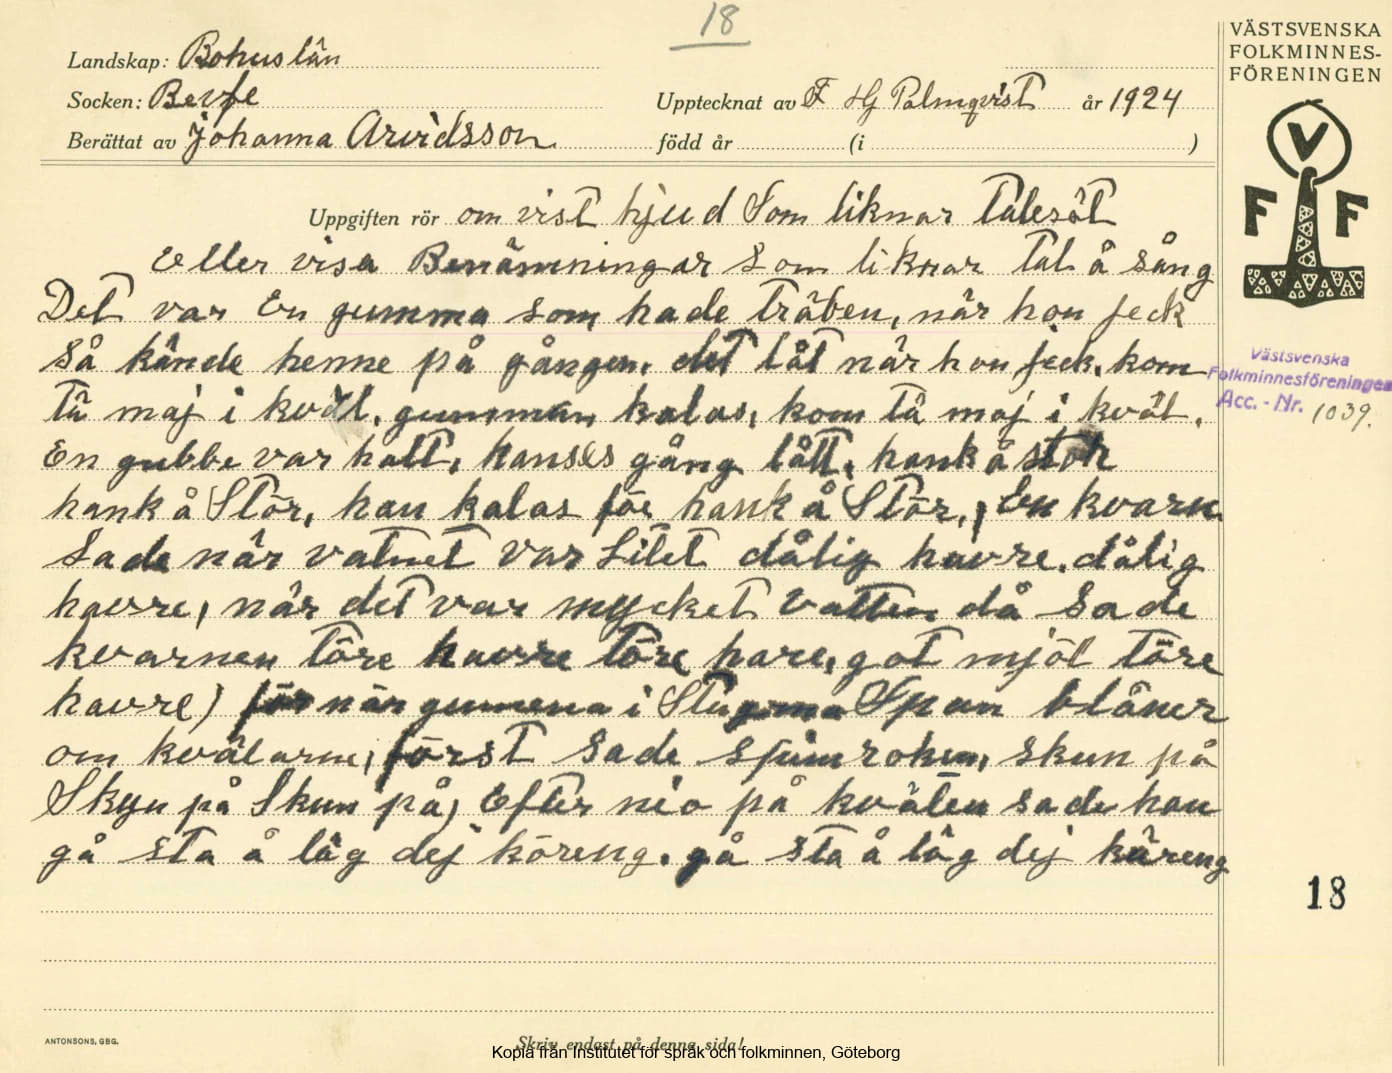 18
VÄSTSVENSKA
FOLKMINNES-
FÖRENINGEN
Landskap: Bohuslän
Socken: Bevfe
Upptecknat av F Hj Palmqvist år 1924
Berättat av Johanna Arvidsson född år (i )
V
F F
Uppgiften rör om vist hjud Som liknar talesät
Eller visa Benämningar Som liknar tal å sång
Det var En gumma som hade träben, när hon jeck
så kände henne på gången. det låt när hon jeck. kom
tä maj i kväl, gumman kalas, kom tä maj i kväl.
En gubbe var halt, hanses gång lått, hank å stör
hank å Stör, han kalas för hank å Stör, En kvarn
Sade när vatnet var Litet dålig havre. dålig
havre, när det var mycket Vatten då Sade
kvarnen töre havre töre hare, got mjöl töre
havre) för när gummena i Stugorna Span blåner
om kvälarne, först Sade spinroken, skun på
Skyn på Skun på, Efter nio på kvälen sade han
gå sta å läg dej köreng. gå sta å läg dej käreng
Västsvenska
Folkminnesföreningen
Acc. - Nr. 1039.
18
ANTONSONS, GBG.
Skriv endast på denna sida!
Kopia från Institutet för språk och folkminnen, Göteborg